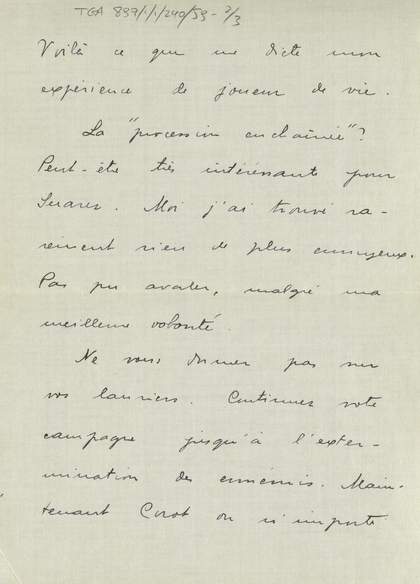 TGA 899/1/1/240/59-2/3
Voilà ce que me dicte mon
expérience de joueur de vie.
La "procession enchaînée"?
Peut-être très intéressante pour
Suarez. Moi j'ai trouvé ra-
rement rien de plus ennuyeux.
Pas pu avaler, malgré ma
meilleure volonté.
Ne vous dormez pas sur
vos lauriers. Continuez votre
campagne jusqu'à l'exter-
mination des ennemis. Main-
tenant Corot ou n'importe